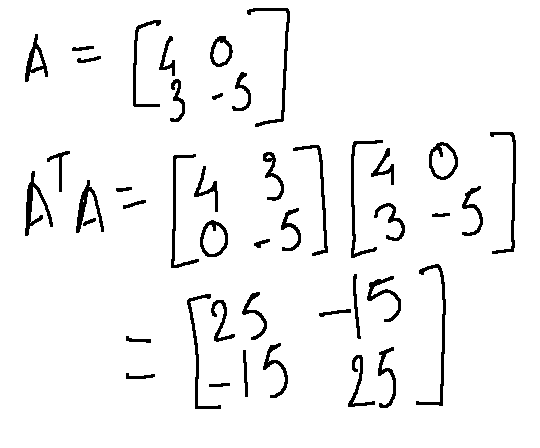 A = [4 0
3 -5]
AᵀA = [4 3 0 -5] [4 0 3 -5]
= [25 -15
-15 25]